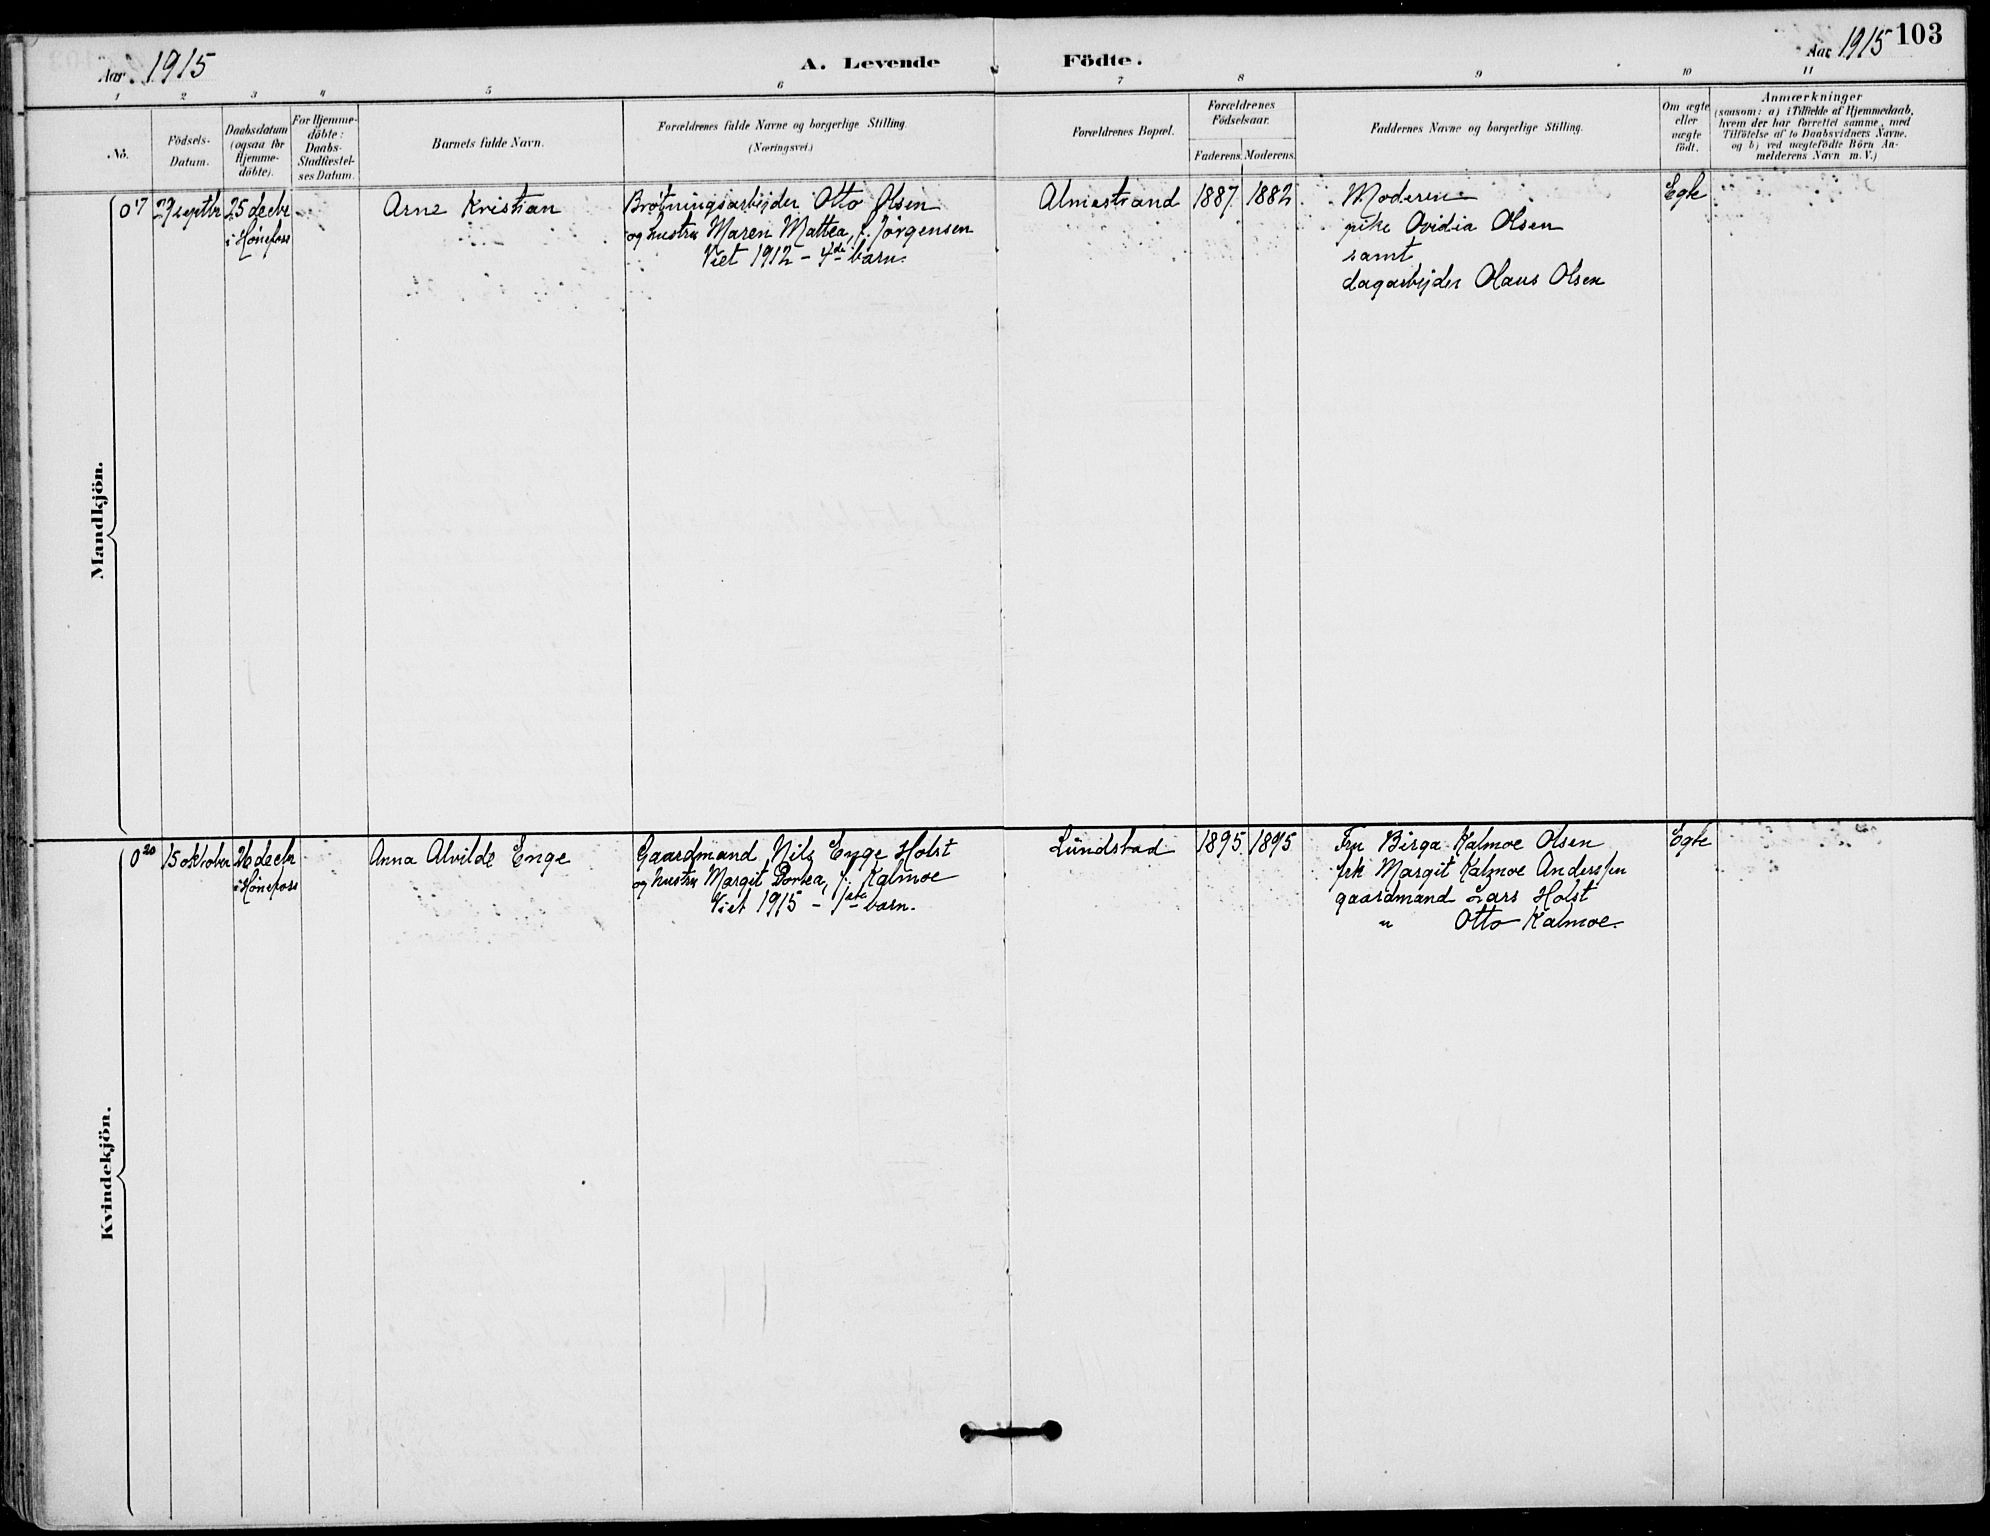 Aar 1915
A. Levende Födte.
Aar 1915 103
1 2 3 4 5 6 7 8 9 10 11
No.
Födsels-
Datum.
Daabsdatum
(ogsaa for
Hjemme-
döbte).
For Hjemme-
döbte:
Daabs-
Stadfæstel-
ses Datum.
Barnets fulde Navn.
Forældrenes fulde Navne og borgerlige Stilling.
(Næringsvei.)
Forældrenes Bopæl.
Forældrenes
Födselsaar.
Faderens. Moderens.
Faddernes Navne og borgerlige Stilling.
Om ægte
eller
uægte
födt.
Anmærkninger
(saasom: a) i Tilfælde af Hjemmedaab,
hvem der har forrettet samme, med
Tilföielse af to Daabsvidners Navne.
og b) ved uægtefödte Börn An-
melderens Navn m. V.)
Mandkjön.
017
septbr
25 decbr
i Hönefoss
Arne Kristian
Brötningsarbeider Otto Olsen
og hustru Maren Mattea, f. Jörgensen
Viet 1912 - 4de barn.
Almestrand
1887
1882
Moderen
pike Ovidia Olsen
samt
dagarbeider Olaus Olsen
Egte
Kvindekjön.
020
15 oktober
26 decbr
i Hönefoss
Anna Alvilde Enge
Gaardmand Nils Enge Holst
og hustru Margit Dortea, f. Kalmoe
Viet 1915 - 1ste barn.
Lundstad
1895
1895
Fru Birga Kalmoe Olsen
frk Margit Kalmoe Anderssen
gaardmand Lars Holst
" Otto Kalmoe.
Egte